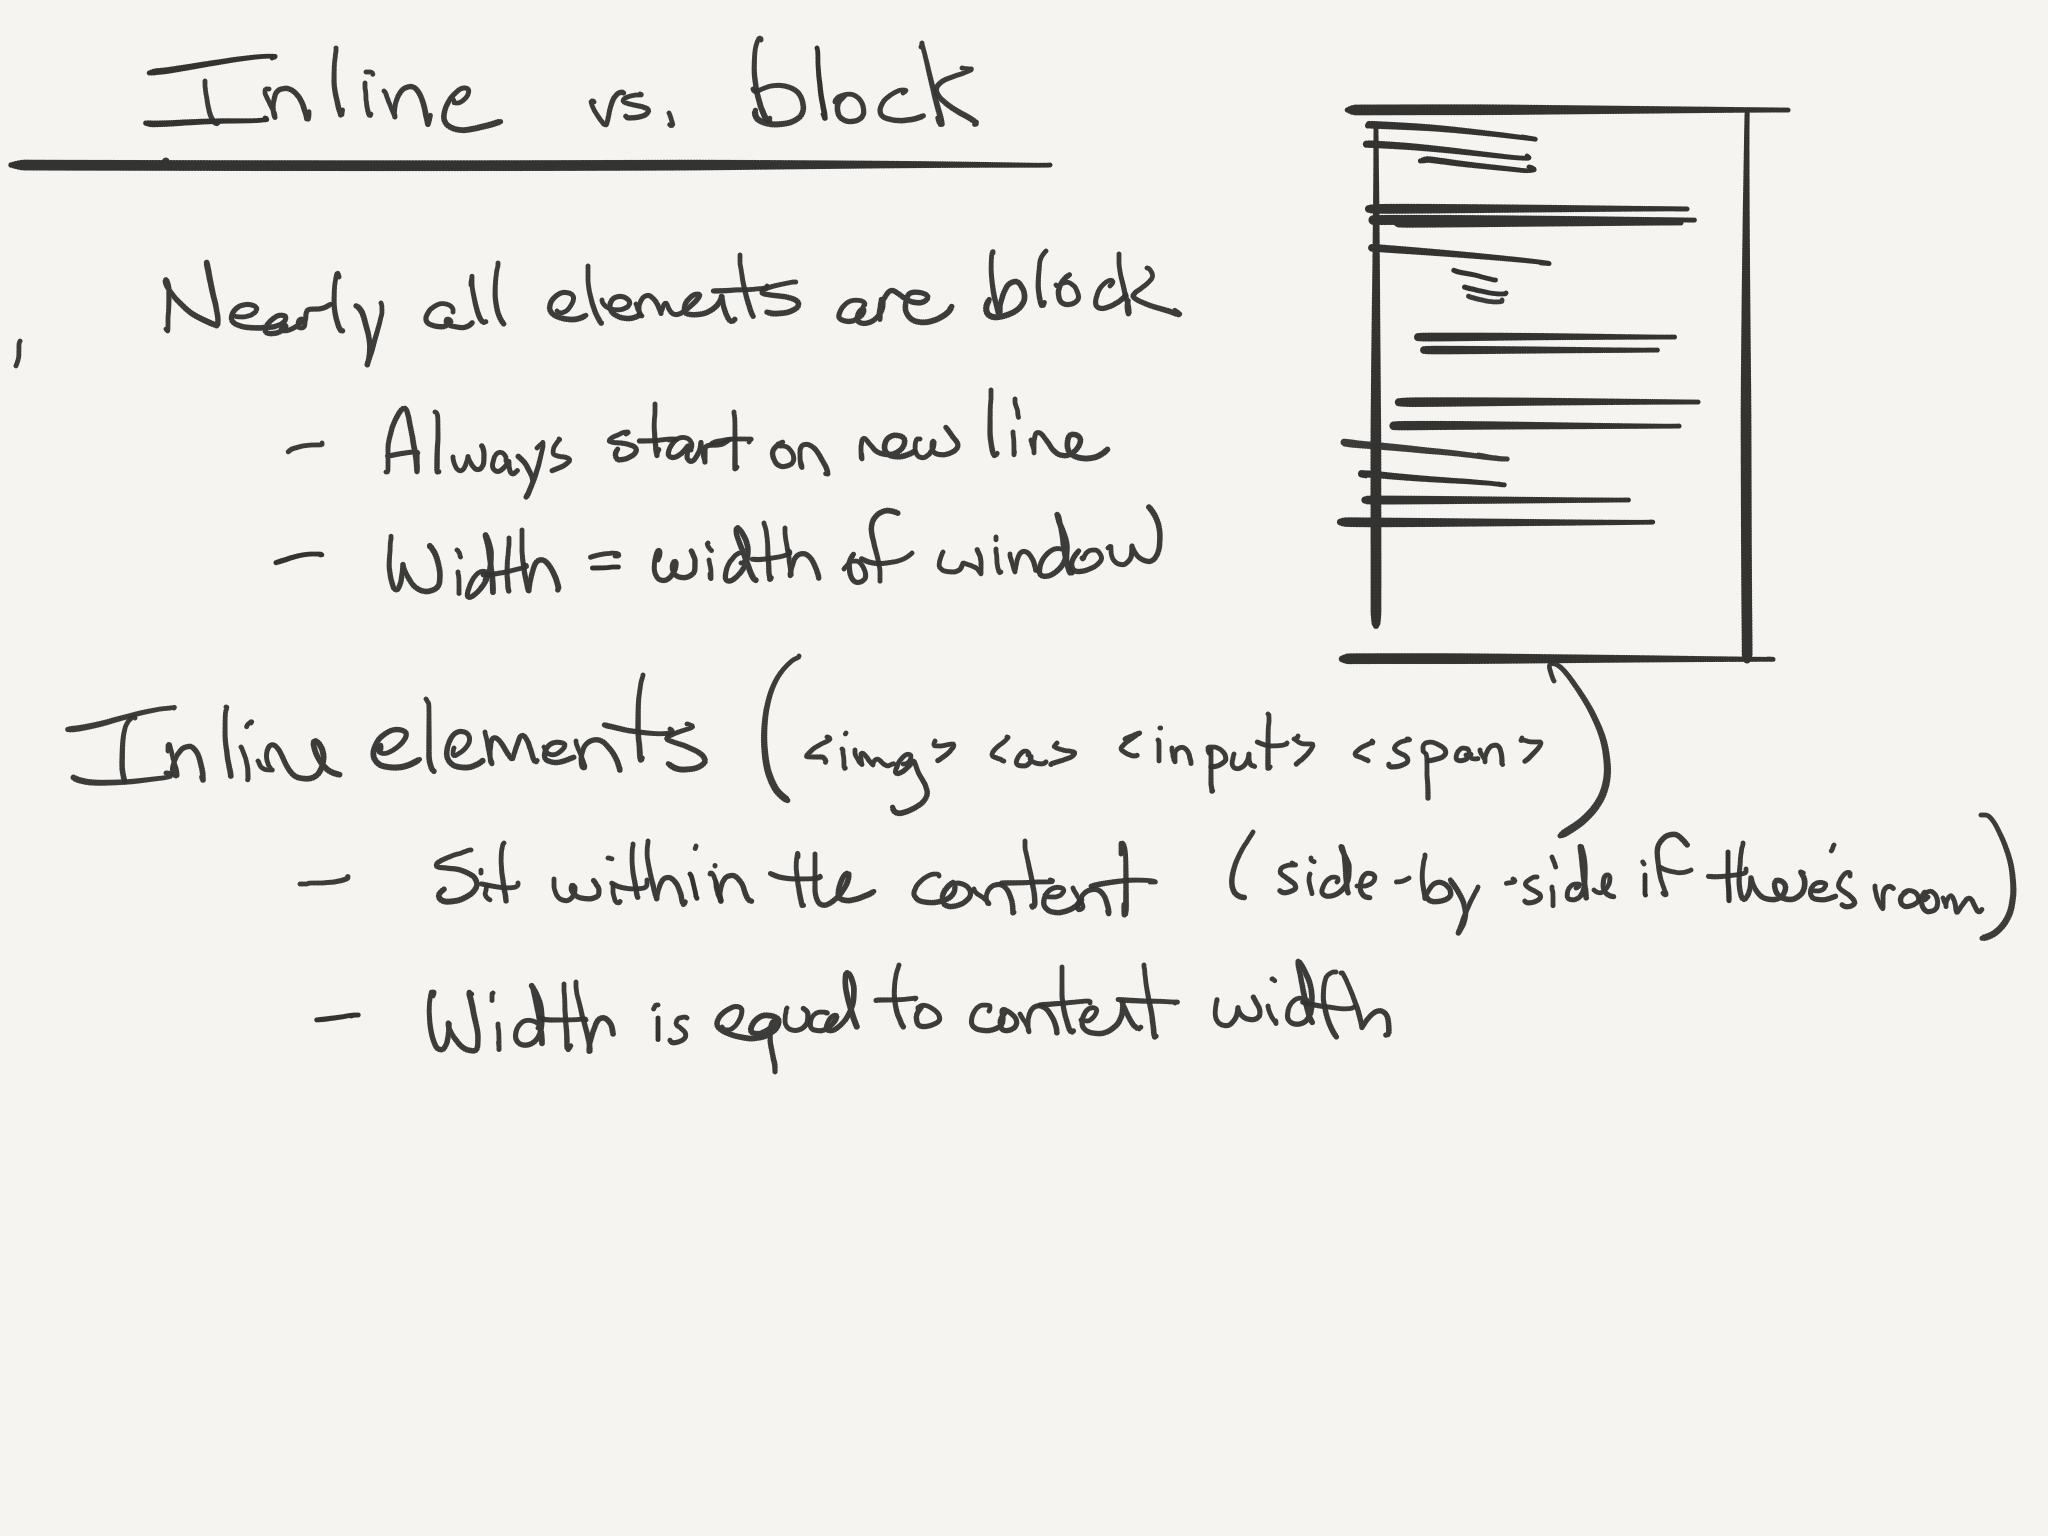 Inline vs. block
Nearly all elements are block
- Always start on new line
- Width = width of window
Inline elements (<img> <a> <input> <span>)
- Sit within the content (side-by-side if there's room)
- Width is equal to content width